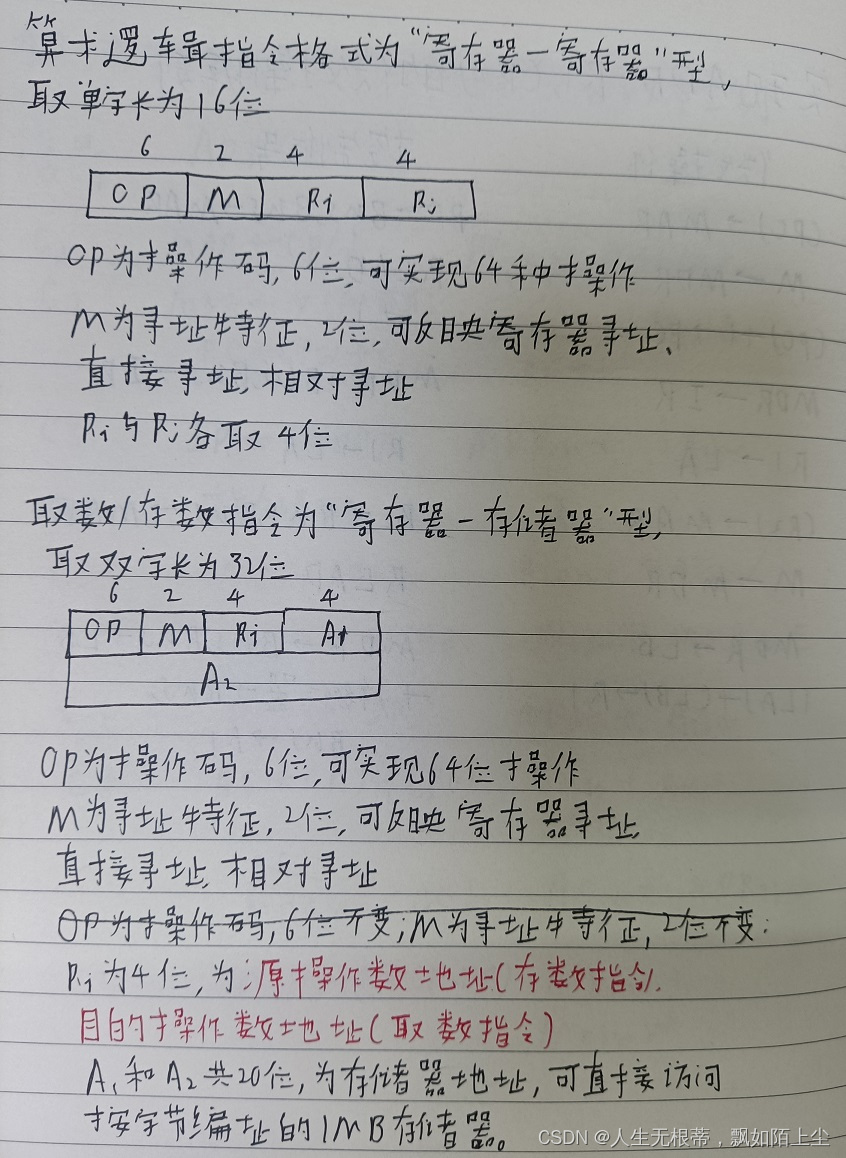 算术逻辑指令格式为“寄存器-寄存器”型，
取单字长为16位
6 2 4 4
OP M Ri Rj
OP为操作码，6位，可实现64种操作
M为寻址特征，2位，可反映寄存器寻址、
直接寻址，相对寻址
Ri与Rj各取4位
取数/存数指令为“寄存器-存储器”型，
取双字长为32位
6 2 4 4
OP M Ri A1
A2
OP为操作码，6位，可实现64位操作
M为寻址特征，2位，可反映寄存器寻址，
直接寻址，相对寻址
OP为操作码，6位不变；M为寻址特征，2位不变；
Ri为4位，为源操作数地址（存数指令），
目的操作数地址（取数指令）
A1和A2共20位，为存储器地址，可直接访问
按字节编址的1MB存储器。
CSDN @人生无根蒂，飘如陌上尘